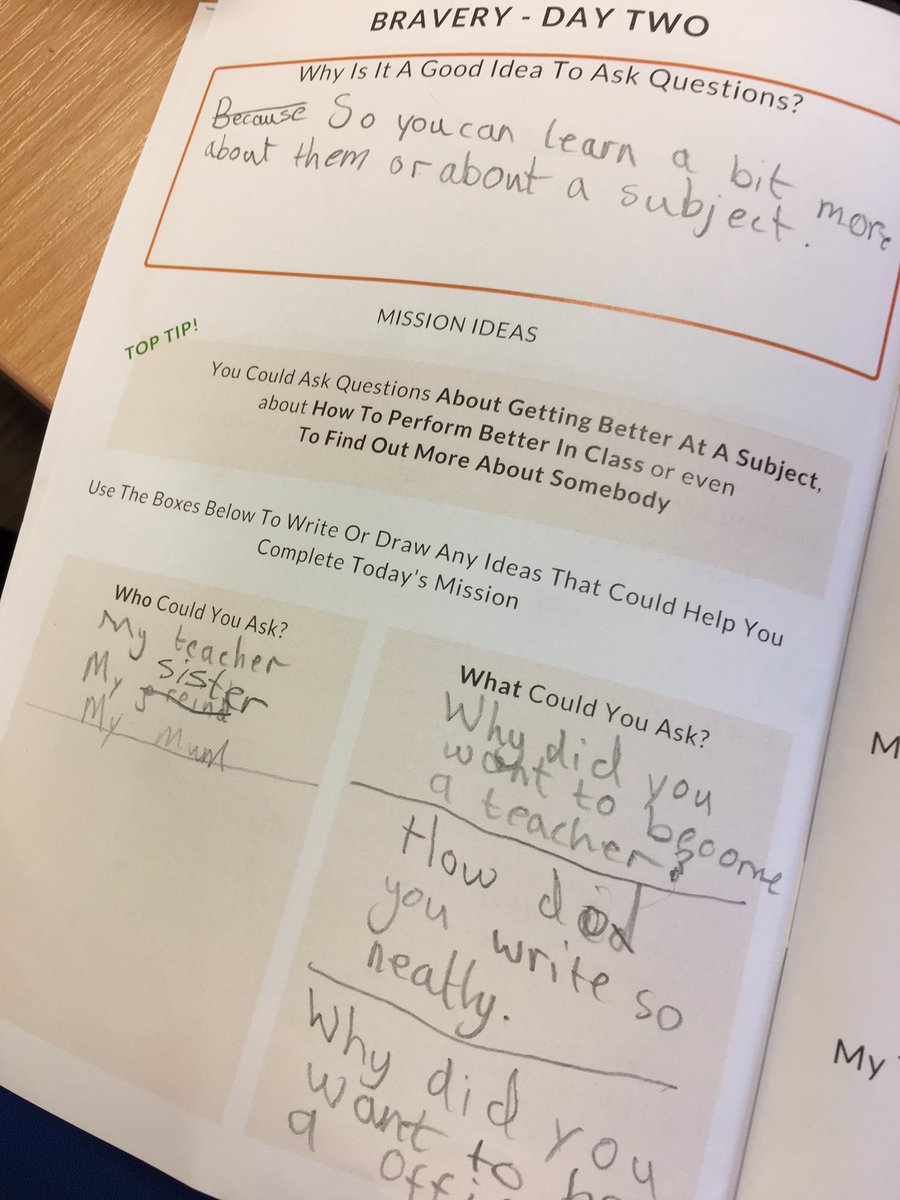 BRAVERY - DAY TWO
Why Is It A Good Idea To Ask Questions?
Because So you can learn a bit more
about them or about a subject.
MISSION IDEAS
TOP TIP!
You Could Ask Questions About Getting Better At A Subject,
about How To Perform Better In Class or even
To Find Out More About Somebody
Use The Boxes Below To Write Or Draw Any Ideas That Could Help You
Complete Today's Mission
Who Could You Ask?
My teacher
My sister
My Mum
What Could You Ask?
Why did you
want to become
a teacher?
How did
you write so
neatly.
Why did you
want to
a
M
My